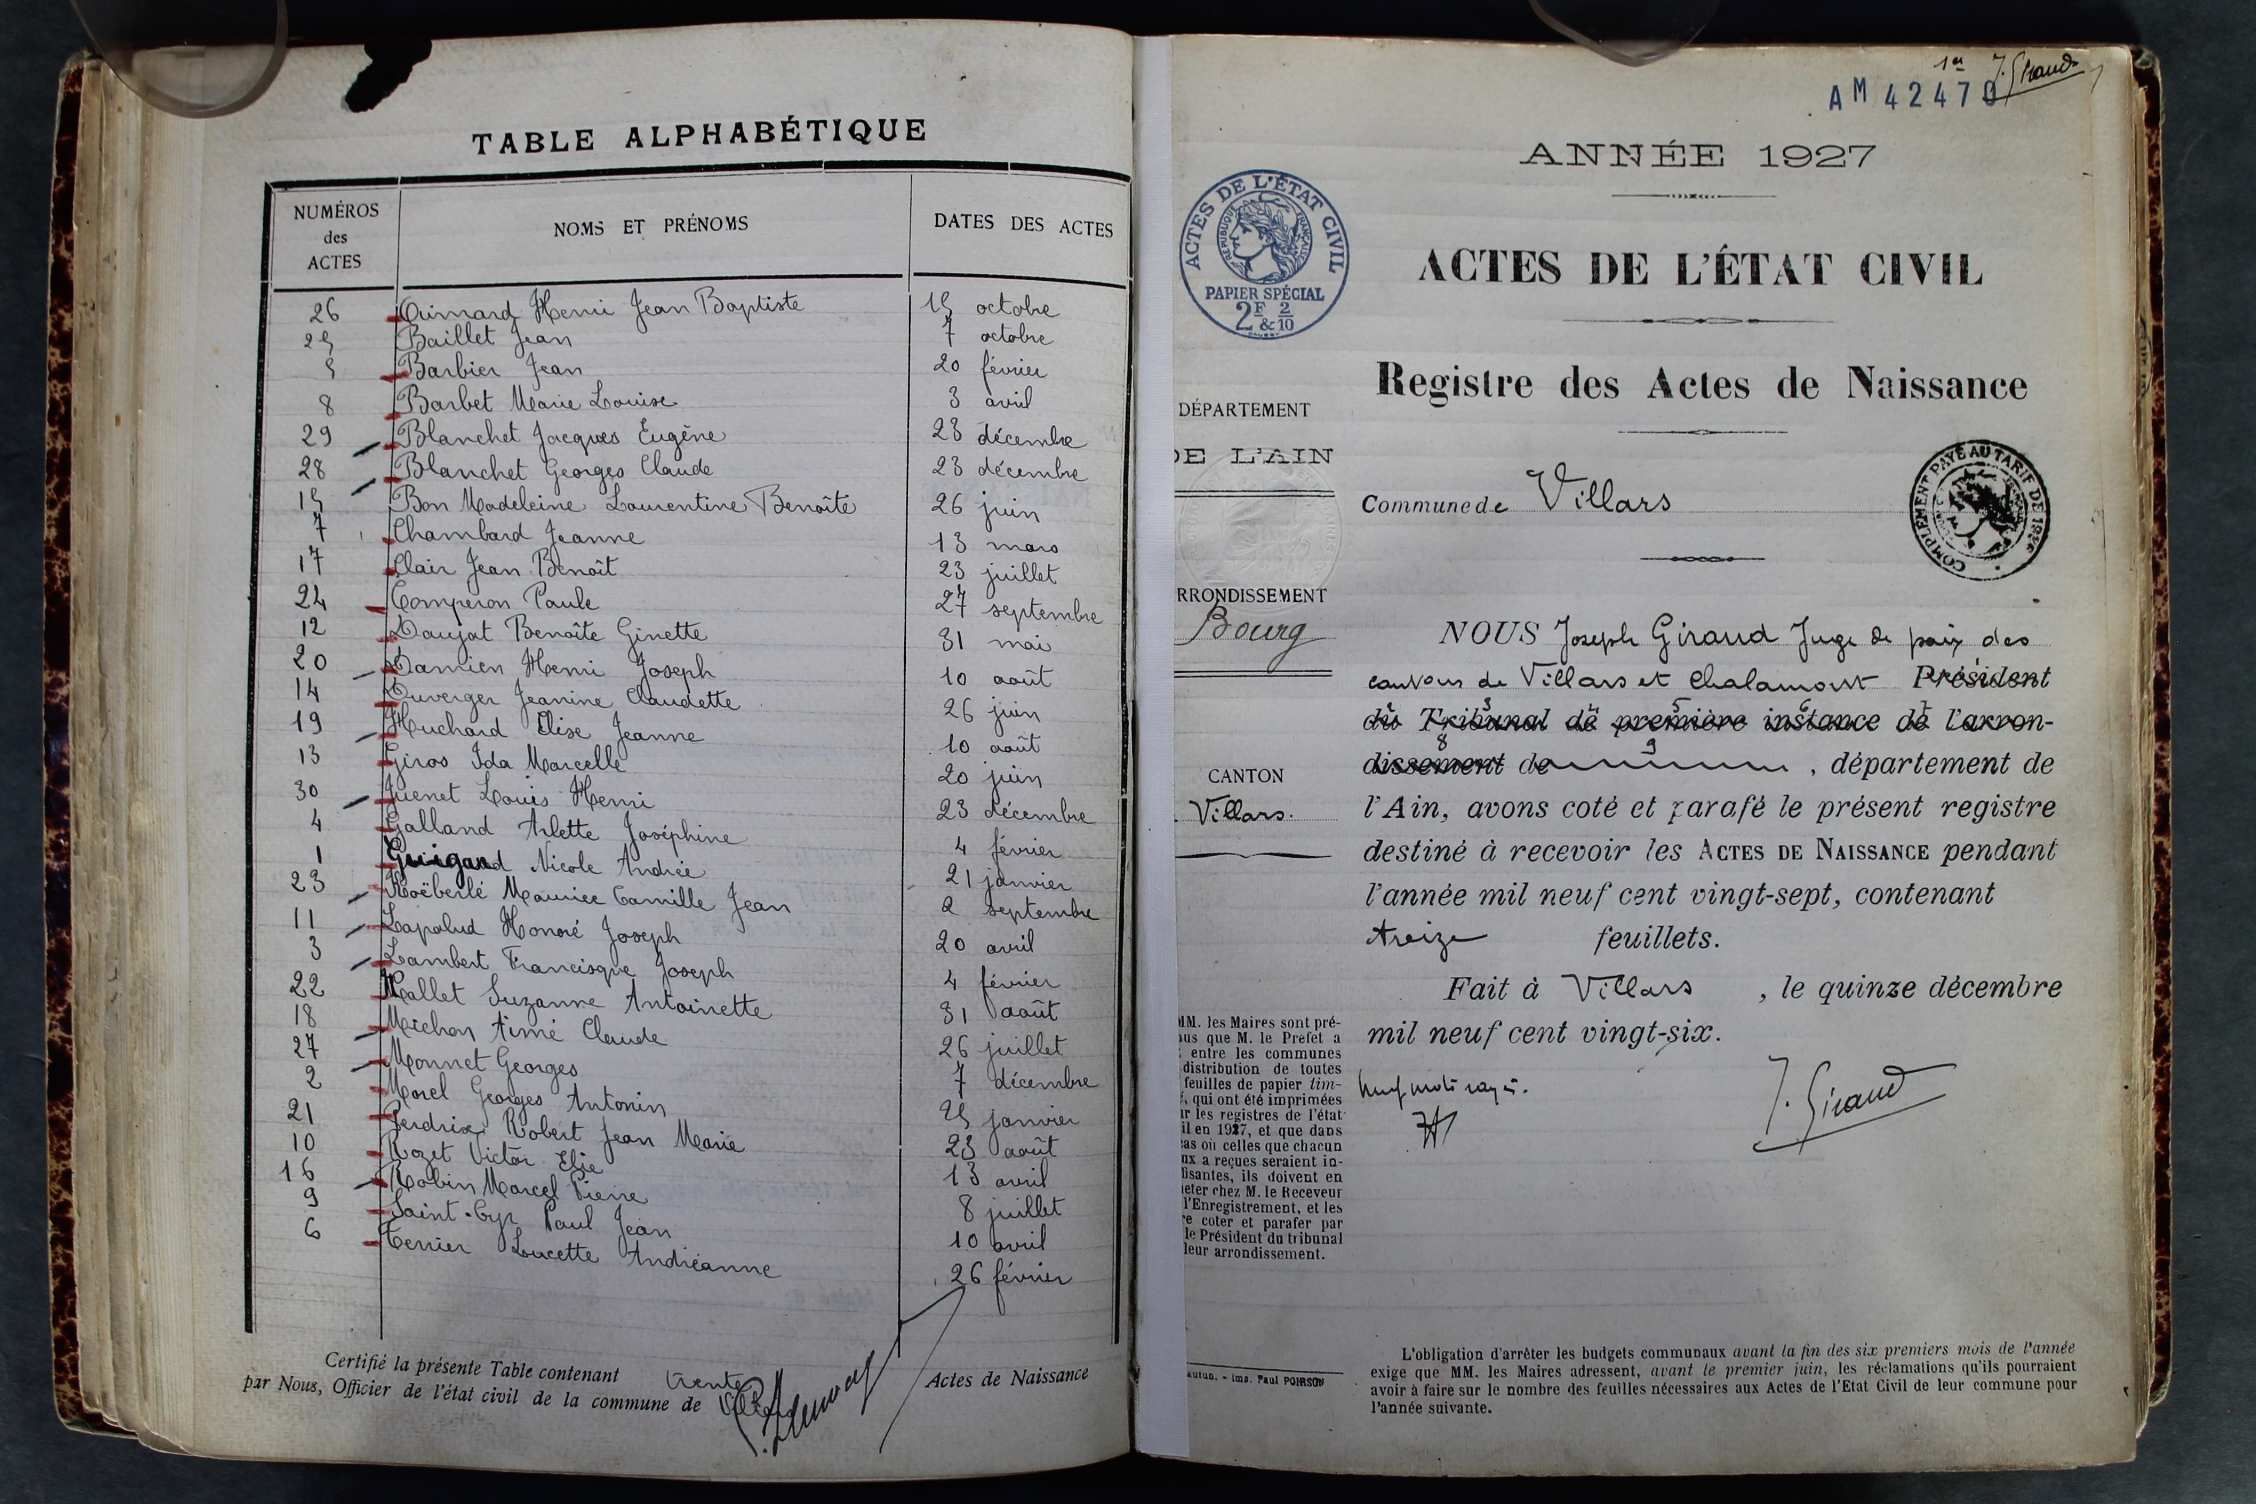 TABLE ALPHABÉTIQUE
NUMÉROS des ACTES
NOMS ET PRÉNOMS
DATES DES ACTES
26 Aimard Henri Jean Baptiste 15 octobre
25 Baillet Jean 7 octobre
5 Barbier Jean 20 février
8 Barbet Marie Louise 3 avril
29 Blanchet Jacques Eugène 23 décembre
28 Blanchet Georges Claude 23 décembre
15 Bon Madeleine Laurentine Benoîte 26 juin
7 Chambard Jeanne 13 mars
17 Clair Jean Benoît 23 juillet
24 Comperon Paule 27 septembre
12 Daujat Benoîte Ginette 31 mai
20 Damien Henri Joseph 10 août
14 Duverger Jeanine Claudette 26 juin
19 Huchard Elise Jeanne 10 août
13 Giros Ida Marcelle 20 juin
30 Juenet Louis Henri 23 décembre
4 Galland Arlette Joséphine 4 février
1 Guigand Nicole Andrée 21 janvier
23 Koëberlé Maurice Camille Jean 2 septembre
11 Lapalud Honoré Joseph 20 avril
3 Lambert Francisque Joseph 4 février
22 Mallet Suzanne Antoinette 31 août
18 Michon Aimé Claude 26 juillet
27 Monnet Georges 7 décembre
2 Morel Georges Antonin 25 janvier
21 Perdrix Robert Jean Marie 23 août
10 Rozet Victor Elie 13 avril
16 Robin Marcel Pierre 8 juillet
9 Saint-Cyr Paul Jean 10 avril
6 Terrier Lucette Andréanne 26 février
Certifié la présente Table contenant trente Actes de Naissance
par Nous, Officier de l'état civil de la commune de Villars
1er J. Giraud
AM 42470
ANNÉE 1927
ACTES DE L'ÉTAT CIVIL
RÉPUBLIQUE FRANÇAISE
PAPIER SPÉCIAL
2F & 2/10
ACTES DE L'ÉTAT CIVIL
Registre des Actes de Naissance
DÉPARTEMENT
DE L'AIN
Commune de Villars
COMPLEMENT PAYÉ AU TARIF DE
RRONDISSEMENT
Bourg
CANTON
Villars.
NOUS Joseph Giraud Juge de paix des
cantons de Villars et Chalamont Président
du Tribunal de première instance de l'arron-
dissement de , département de
l'Ain, avons coté et parafé le présent registre
destiné à recevoir les ACTES DE NAISSANCE pendant
l'année mil neuf cent vingt-sept, contenant
treize feuillets.
Fait à Villars , le quinze décembre
mil neuf cent vingt-six.
neuf mots rayés.
J. Giraud
MM. les Maires sont pré-
us que M. le Prefet a
entre les communes
distribution de toutes
feuilles de papier tim-
, qui ont été imprimées
ur les registres de l'état
il en 1927, et que dans
cas où celles que chacun
ux a reçues seraient in-
fisantes, ils doivent en
heter chez M. le Receveur
l'Enregistrement, et les
re coter et parafer par
le Président du tribunal
leur arrondissement.
autun. - Imp. Paul POIRSON
L'obligation d'arrêter les budgets communaux avant la fin des six premiers mois de l'année
exige que MM. les Maires adressent, avant le premier juin, les réclamations qu'ils pourraient
avoir à faire sur le nombre des feuilles nécessaires aux Actes de l'Etat Civil de leur commune pour
l'année suivante.